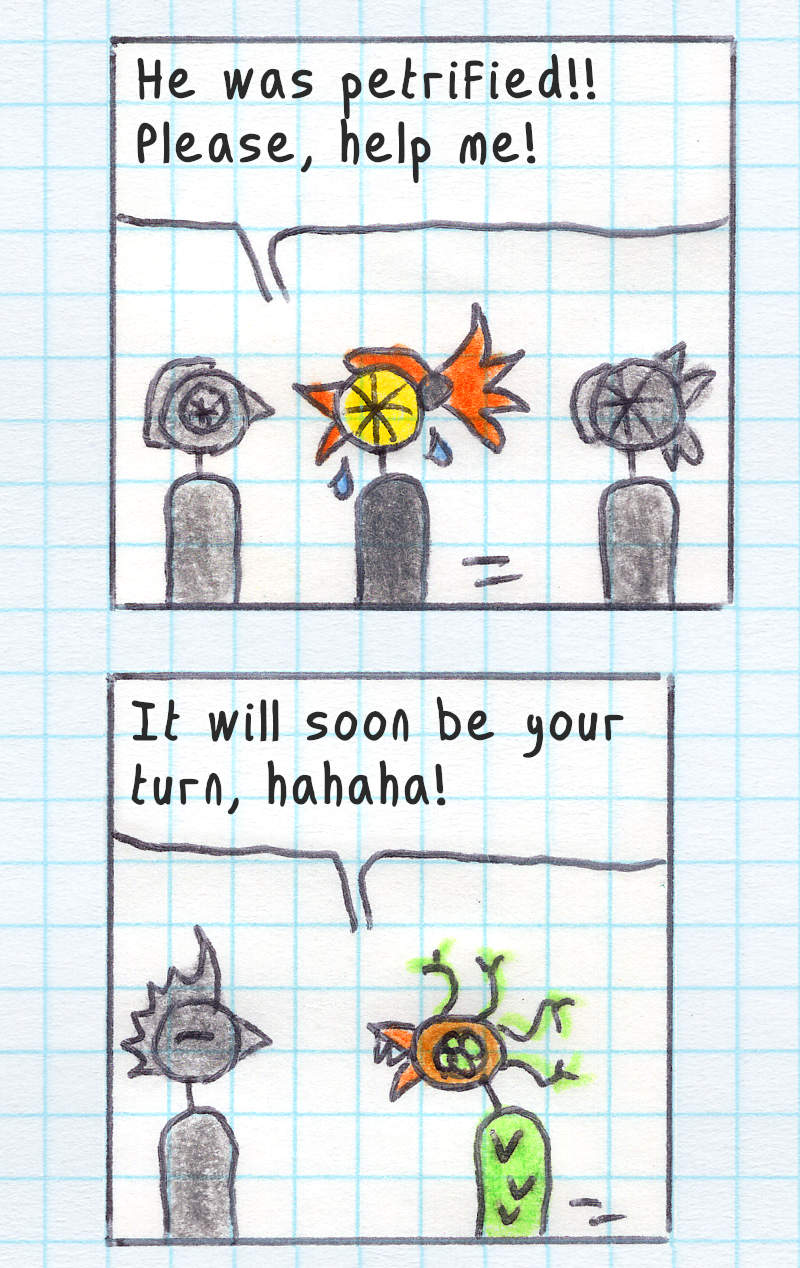 He was petrified!!
Please, help me!
It will soon be your
turn, hahaha!